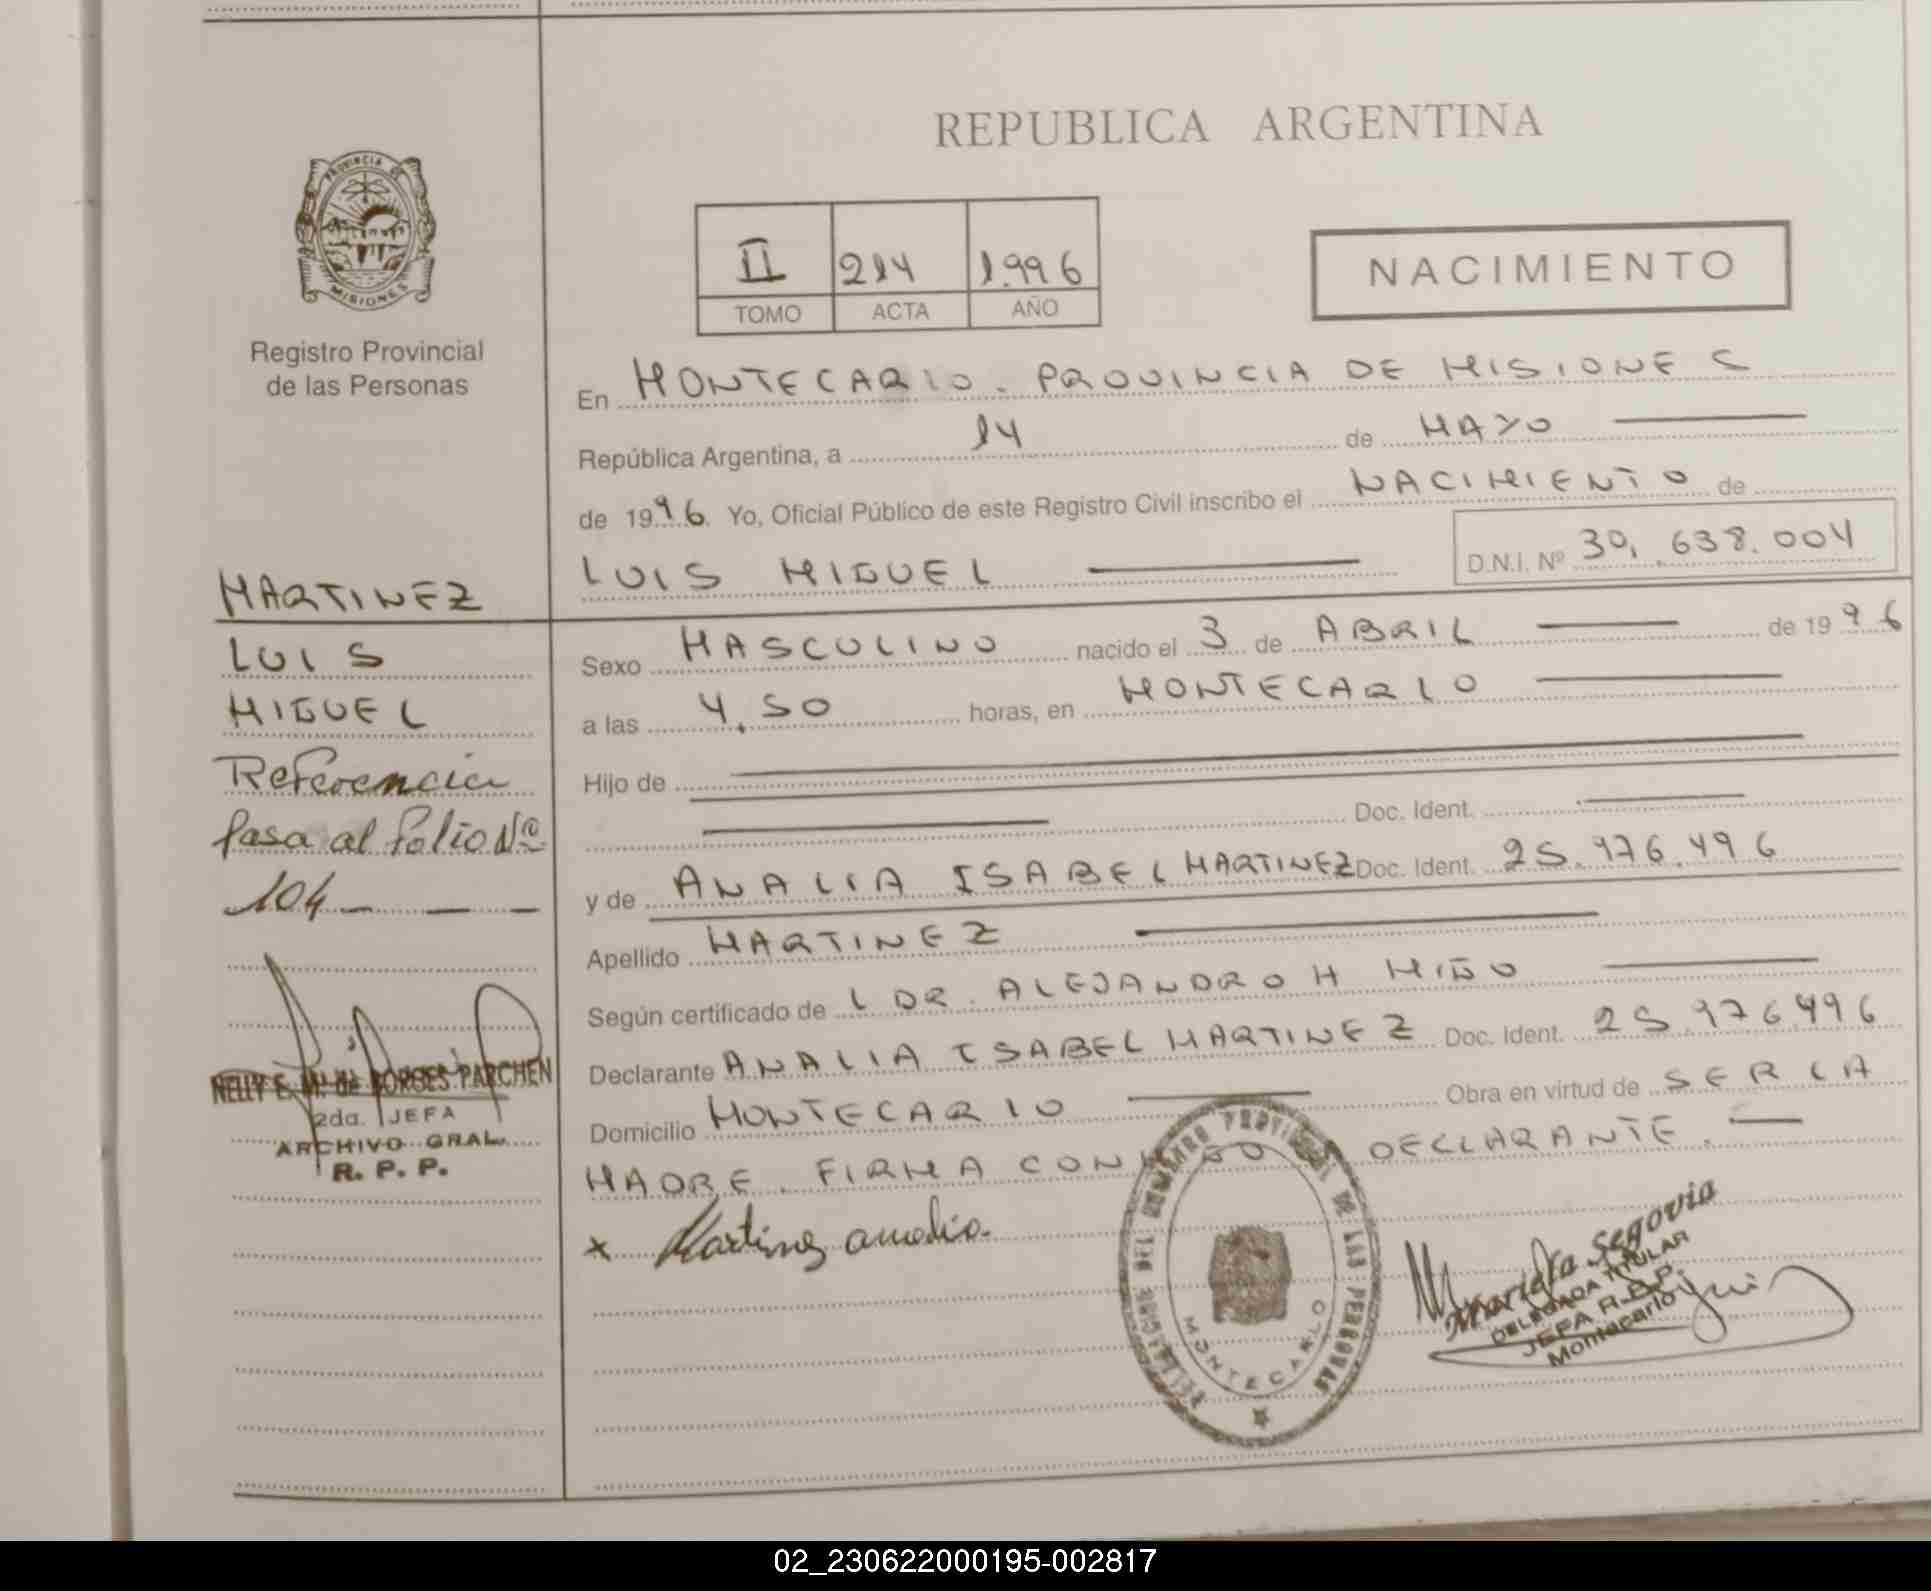 REPUBLICA ARGENTINA
PROVINCIA DE
MISIONES
Registro Provincial
de las Personas
II 214 1.996
TOMO ACTA AÑO
NACIMIENTO
En MONTECARLO. PROVINCIA DE MISIONES
República Argentina, a 14 de MAYO
de 1996. Yo, Oficial Público de este Registro Civil inscribo el NACIMIENTO de
LUIS MIGUEL D.N.I. Nº 39.638.004
MARTINEZ
LUIS
MIGUEL
Referencia
Pasa al folio Nº
104
NELLY E. M. de BORGES PARCHEN
2da. JEFA
ARCHIVO GRAL.
R. P. P.
Sexo MASCULINO nacido el 3 de ABRIL de 1996
a las 4.50 horas, en MONTECARLO
Hijo de
Doc. Ident.
y de ANALIA ISABEL MARTINEZ Doc. Ident. 25.976.496
Apellido MARTINEZ
Según certificado de L DR. ALEJANDRO H MIÑO
Declarante ANALIA ISABEL MARTINEZ Doc. Ident. 25.976.496
Domicilio MONTECARLO Obra en virtud de SER LA
MADRE. FIRMA CONMIGO LA DECLARANTE.
x Martinez analia.
REGISTRO PROVINCIAL DE LAS PERSONAS
MONTECARLO
Segovia
DELEGADA TITULAR
JEFA R.P.P.
Montecarlo
02_230622000195-002817